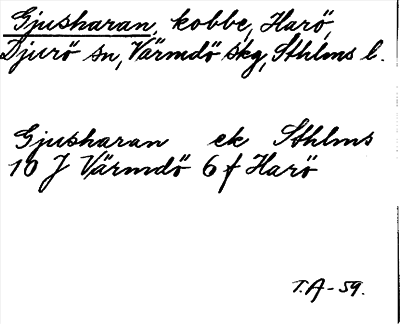 Gjusharan, kobbe, Harö,
Djurö sn, Värmdö skg, Sthlms l.
Gjusharan ek Sthlms
10 J Värmdö 6 f Harö
T.A-59.